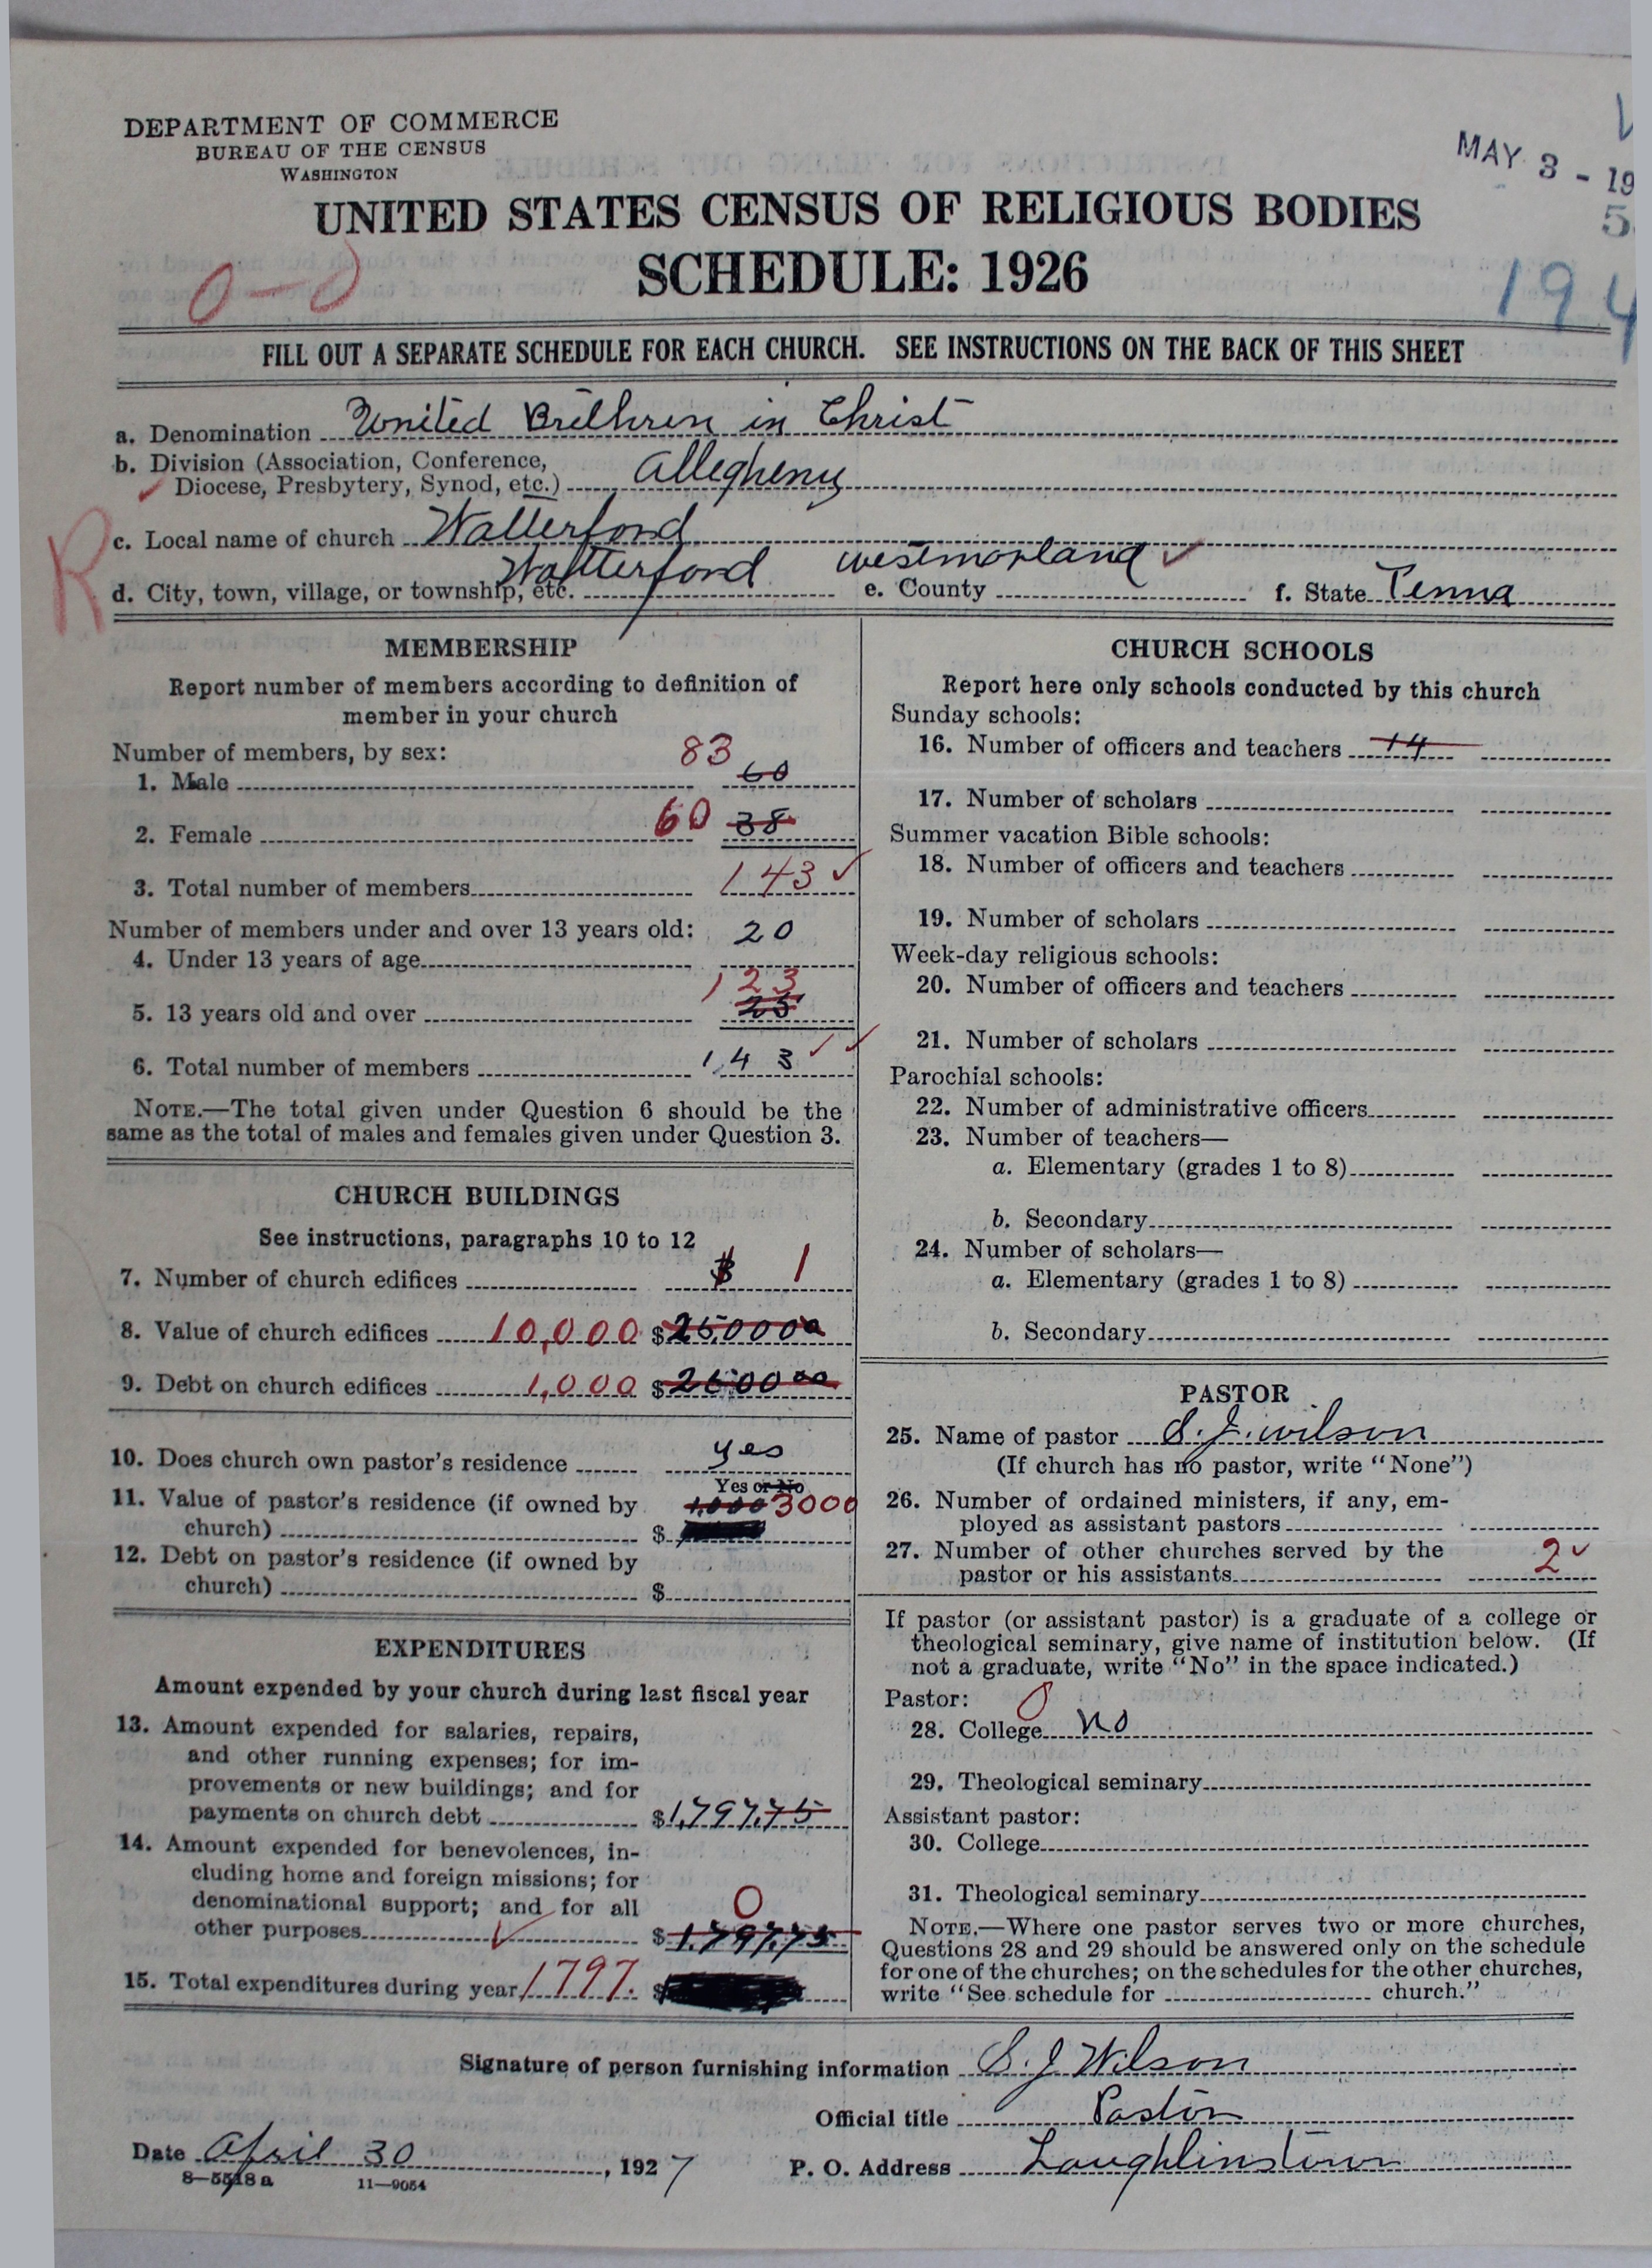 DEPARTMENT OF COMMERCE
BUREAU OF THE CENSUS
WASHINGTON
MAY 3 - 19
5
UNITED STATES CENSUS OF RELIGIOUS BODIES
SCHEDULE: 1926
0-0
194
FILL OUT A SEPARATE SCHEDULE FOR EACH CHURCH. SEE INSTRUCTIONS ON THE BACK OF THIS SHEET
a. Denomination United Brethren in Christ
b. Division (Association, Conference,
Diocese, Presbytery, Synod, etc.) Allegheny
R
c. Local name of church Watterford
d. City, town, village, or township, etc. Watterford e. County Westmorland ✓ f. State Penna
MEMBERSHIP
Report number of members according to definition of
member in your church
Number of members, by sex:
1. Male 83 60
2. Female 60 38
3. Total number of members 143 ✓
Number of members under and over 13 years old:
4. Under 13 years of age 20
5. 13 years old and over 123 25
6. Total number of members 143 ✓ ✓
NOTE.—The total given under Question 6 should be the
same as the total of males and females given under Question 3.
CHURCH BUILDINGS
See instructions, paragraphs 10 to 12
7. Number of church edifices 1
8. Value of church edifices 10,000 $25,00000
9. Debt on church edifices 1,000 $
10. Does church own pastor's residence yes
Yes or No
11. Value of pastor's residence (if owned by
church) $ 1,000 3000
12. Debt on pastor's residence (if owned by
church) $
EXPENDITURES
Amount expended by your church during last fiscal year
13. Amount expended for salaries, repairs,
and other running expenses; for im-
provements or new buildings; and for
payments on church debt $1,797.75
14. Amount expended for benevolences, in-
cluding home and foreign missions; for
denominational support; and for all
other purposes ✓ 0 $1,797.75
15. Total expenditures during year 1797. $
CHURCH SCHOOLS
Report here only schools conducted by this church
Sunday schools:
16. Number of officers and teachers 14
17. Number of scholars
Summer vacation Bible schools:
18. Number of officers and teachers
19. Number of scholars
Week-day religious schools:
20. Number of officers and teachers
21. Number of scholars
Parochial schools:
22. Number of administrative officers
23. Number of teachers—
a. Elementary (grades 1 to 8)
b. Secondary
24. Number of scholars—
a. Elementary (grades 1 to 8)
b. Secondary
PASTOR
25. Name of pastor S. J. Wilson
(If church has no pastor, write "None")
26. Number of ordained ministers, if any, em-
ployed as assistant pastors
27. Number of other churches served by the
pastor or his assistants 2 ✓
If pastor (or assistant pastor) is a graduate of a college or
theological seminary, give name of institution below. (If
not a graduate, write "No" in the space indicated.)
Pastor: 0
28. College No
29. Theological seminary
Assistant pastor:
30. College
31. Theological seminary
NOTE.—Where one pastor serves two or more churches,
Questions 28 and 29 should be answered only on the schedule
for one of the churches; on the schedules for the other churches,
write "See schedule for church."
Signature of person furnishing information S. J. Wilson
Official title Pastor
Date April 30, 1927 P. O. Address Laughlinstown
8-5518a 11-9054